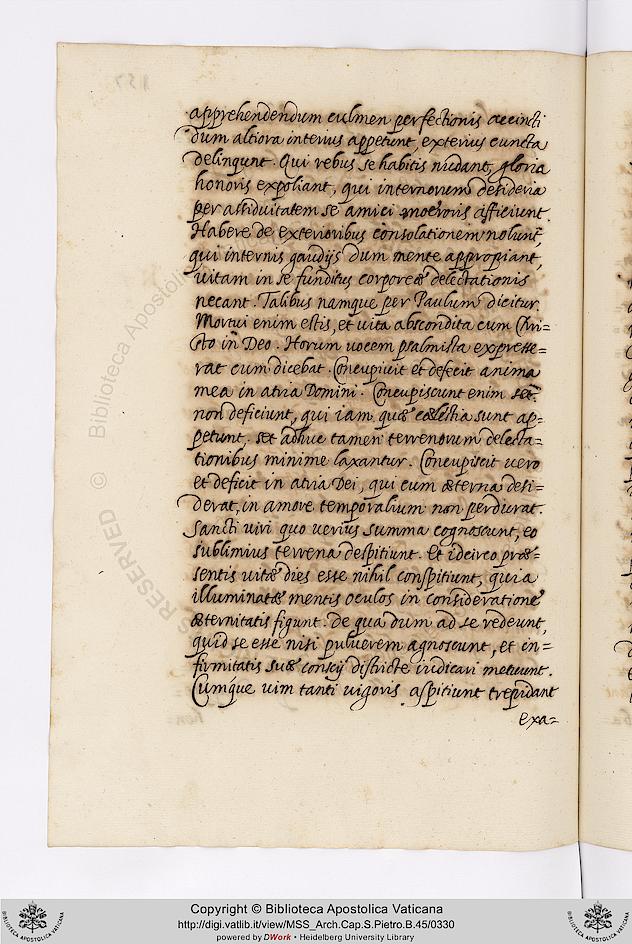 apprehendendum culmen perfectionis accincti
dum altiora interius appetunt, exterius cuncta
delinqunt. Qui rebus se habitis nudant, gloria
honoris expoliant, qui internorum desideria
per assiduitatem se amici moeroris afficiunt.
Habere de exterioribus consolationem nolunt,
qui internis gaudijs dum mente appropiant,
vitam in se funditus corporeæ delectationis
necant. Talibus namque per Paulum dicitur.
Mortui enim estis, et vita abscondita cum Chri=
sto in Deo. Horum vocem psalmista expresse=
rat cum dicebat. Concupivit et defecit anima
mea in atria Domini. Concupiscunt enim set
non deficiunt, qui iam quæ cælestia sunt ap=
petunt. set adhuc tamen terrenorum delecta=
tionibus minime laxantur. Concupiscit vero
et deficit in atria Dei, qui cum æterna desi=
derat, in amore temporalium non perdurat.
Sancti viri quo verius summa cognoscunt, eo
sublimius terrena despitiunt. Et idcirco præ=
sentis vitæ dies esse nihil conspitiunt, quia
illuminatæ mentis oculos in consideratione
æternitatis figunt. De qua dum ad se redeunt,
quid se esse nisi pulverem agnoscunt, et in=
firmitatis suæ conscij districte iudicari metuunt.
Cumque vim tanti vigoris aspitiunt trepidant
exa=
Biblioteca Apostolica
© RESERVED
Copyright © Biblioteca Apostolica Vaticana
http://digi.vatlib.it/view/MSS_Arch.Cap.S.Pietro.B.45/0330
powered by DWork • Heidelberg University Library